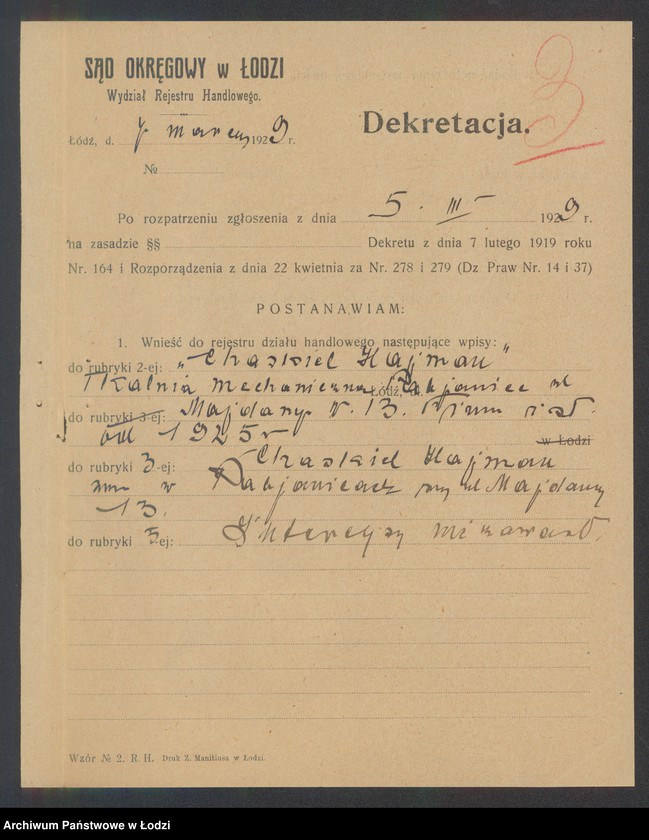 SĄD OKRĘGOWY w ŁODZI
Wydział Rejestru Handlowego.
3
Łódź, d. 7 marca 1929 r.
Dekretacja.
№
Po rozpatrzeniu zgłoszenia z dnia 5. III 1929 r.
na zasadzie §§ Dekretu z dnia 7 lutego 1919 roku
Nr. 164 i Rozporządzenia z dnia 22 kwietnia za Nr. 278 i 279 (Dz Praw Nr. 14 i 37)
POSTANAWIAM:
1. Wnieść do rejestru działu handlowego następujące wpisy:
do rubryki 2-ej: „Chaskiel Hajman"
Tkalnia mechaniczna Łódź, Pabjanice ul
do rubryki 3-ej: Majdany N. 13. Firma istn.
od 1925 r
w Łodzi
do rubryki 3-ej: Chaskiel Hajman
zam w Pabjanicach przy ul Majdany
13.
do rubryki 5-ej: Intercyzy nie zawarł.
Wzór № 2. R. H. Druk Z. Manitiusa w Łodzi.
Archiwum Państwowe w Łodzi